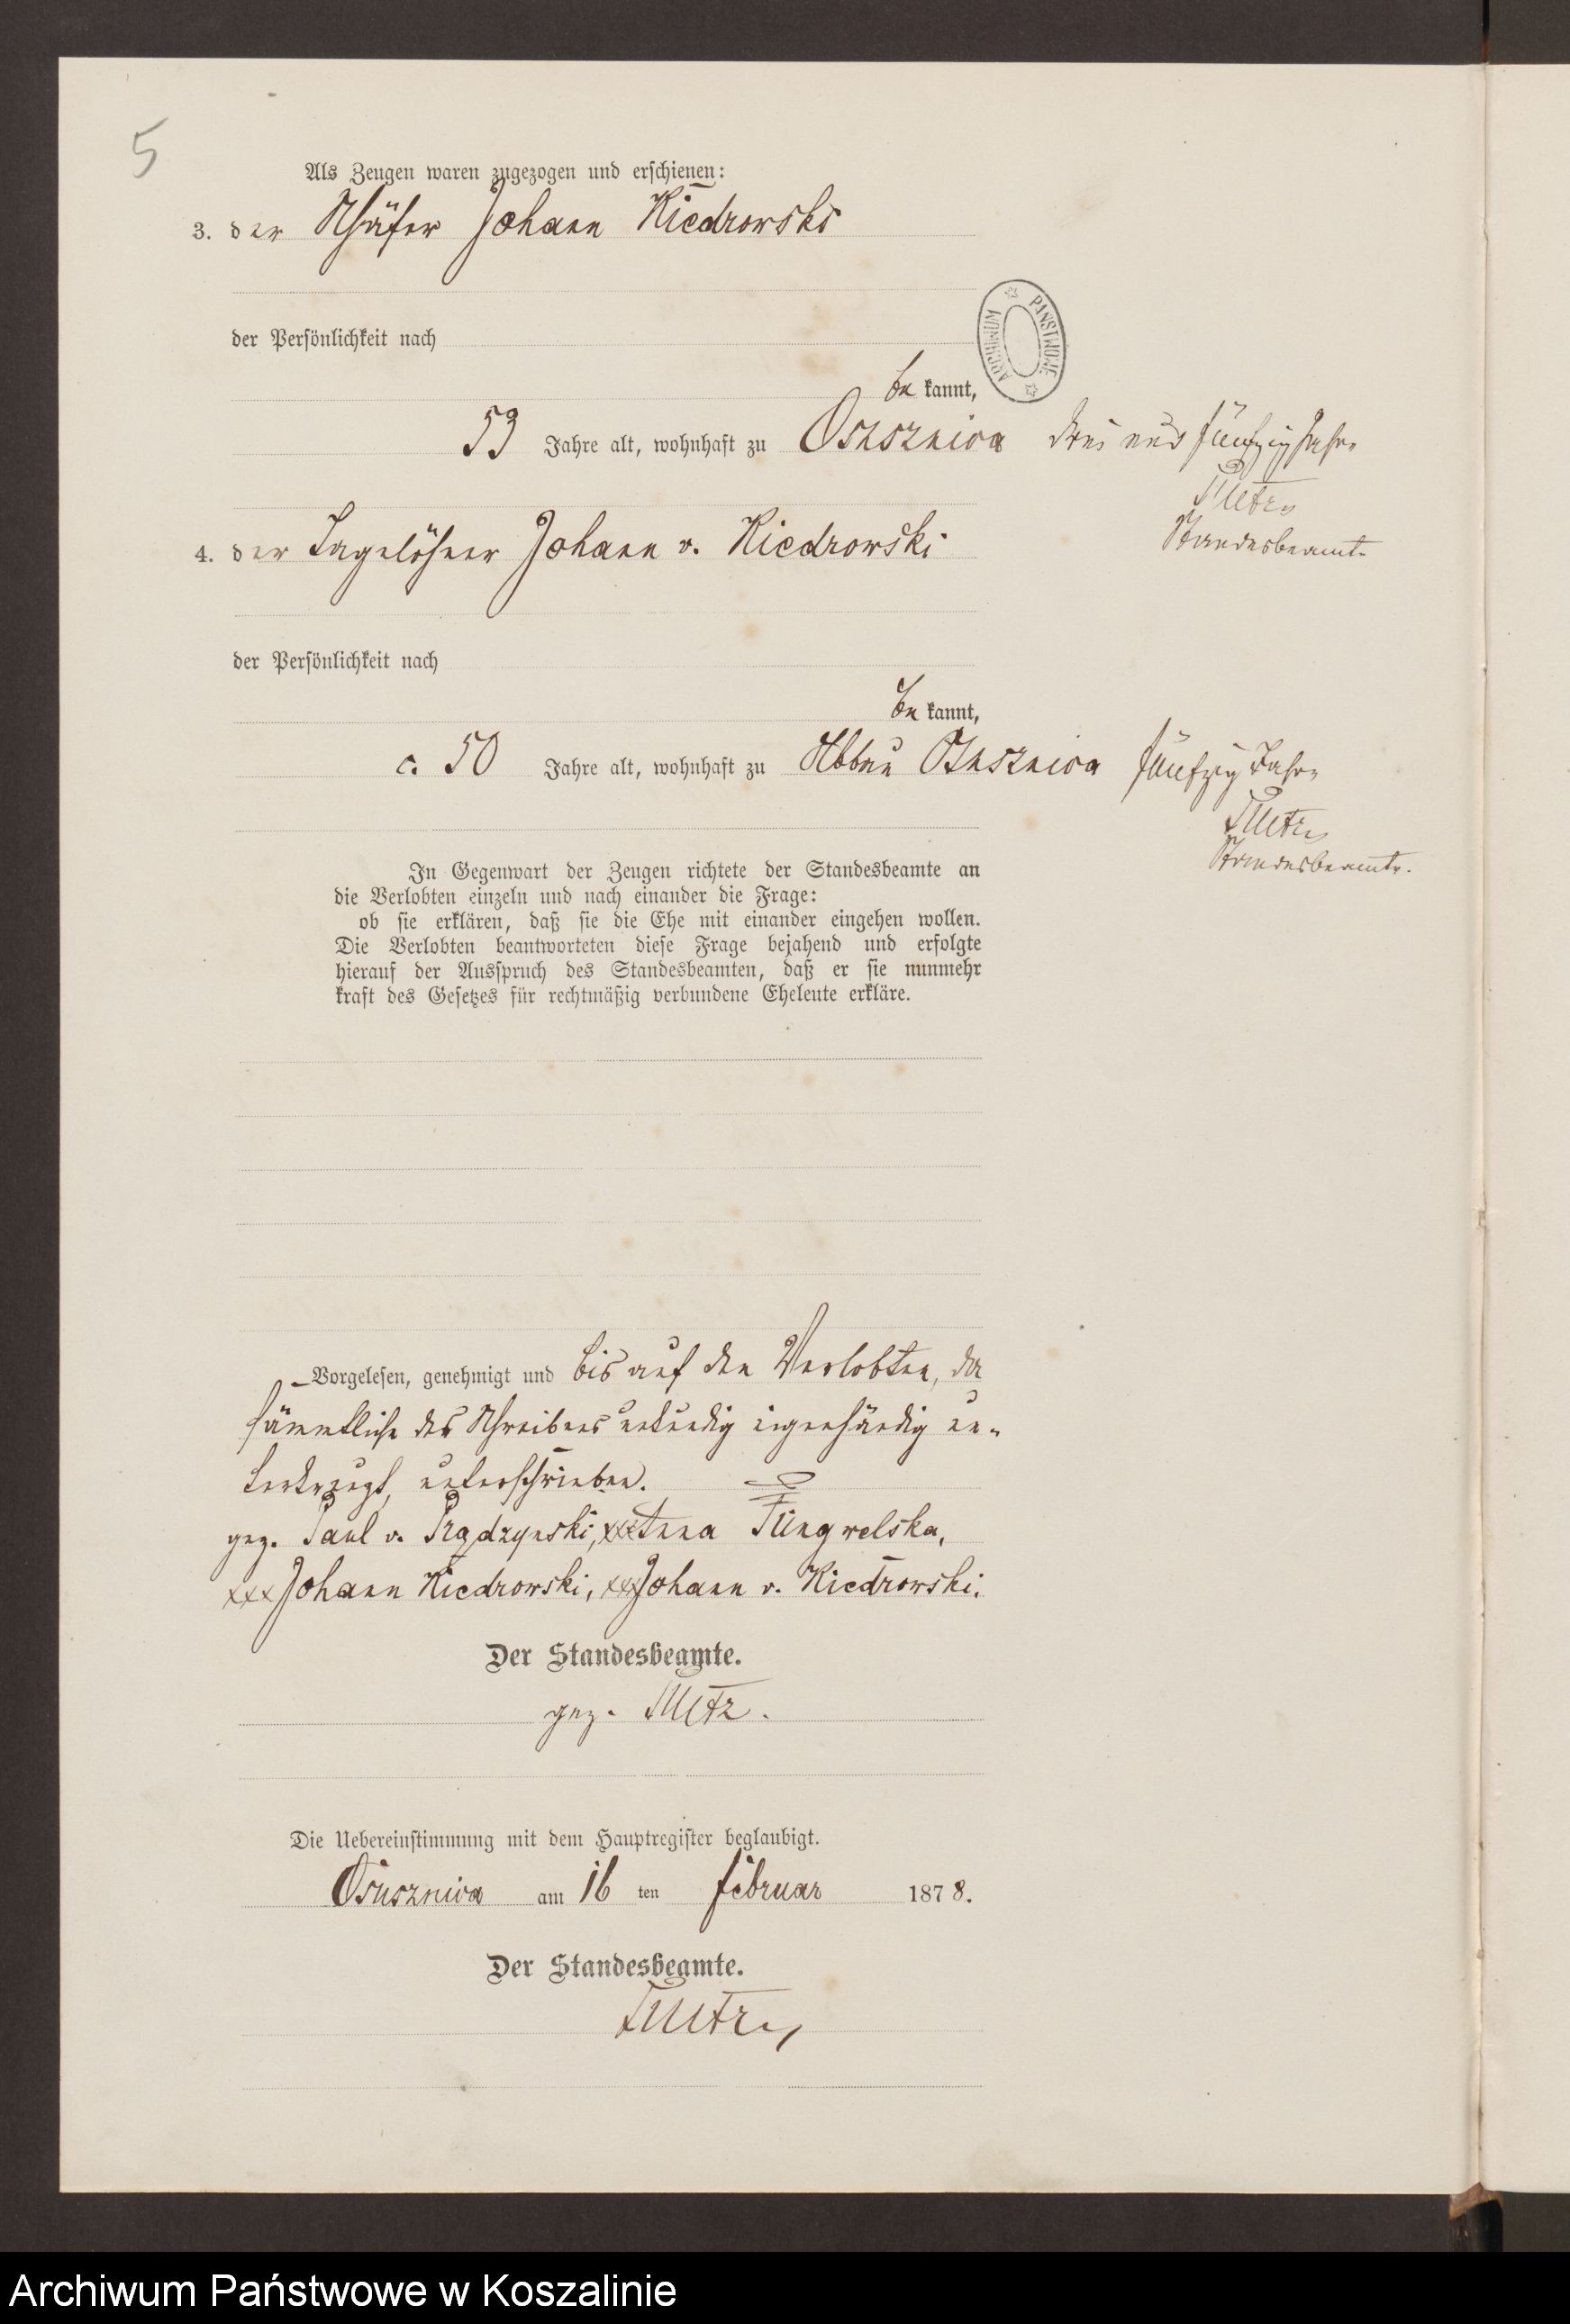 5
Als Zeugen waren zugezogen und erschienen:
3. der Schäfer Johann Kiedrowski
der Persönlichkeit nach
be kannt,
53 Jahre alt, wohnhaft zu Osusznica drei und fünfzig Jahre
Metz
Standesbeamte
ARCHIWUM PAŃSTWOWE
4. der Tagelöhner Johann v. Kiedrowski
der Persönlichkeit nach
be kannt,
c. 50 Jahre alt, wohnhaft zu Abbau Osusznica fünfzig Jahre
Metz
Standesbeamte.
In Gegenwart der Zeugen richtete der Standesbeamte an
die Verlobten einzeln und nach einander die Frage:
ob sie erklären, daß sie die Ehe mit einander eingehen wollen.
Die Verlobten beantworteten diese Frage bejahend und erfolgte
hierauf der Ausspruch des Standesbeamten, daß er sie nunmehr
kraft des Gesetzes für rechtmäßig verbundene Eheleute erkläre.
Vorgelesen, genehmigt und bis auf den Verlobten, da
sämmtliche des Schreibens unkundig eigenhändig un-
terkreuzt, unterschrieben.
gez. Paul v. Prądzynski, xxx Anna Püngwelska,
xxx Johann Kiedrowski, xxx Johann v. Kiedrowski.
Der Standesbeamte.
gez. Metz.
Die Uebereinstimmung mit dem Hauptregister beglaubigt.
Osusznica am 16 ten Februar 1878.
Der Standesbeamte.
Metz
Archiwum Państwowe w Koszalinie